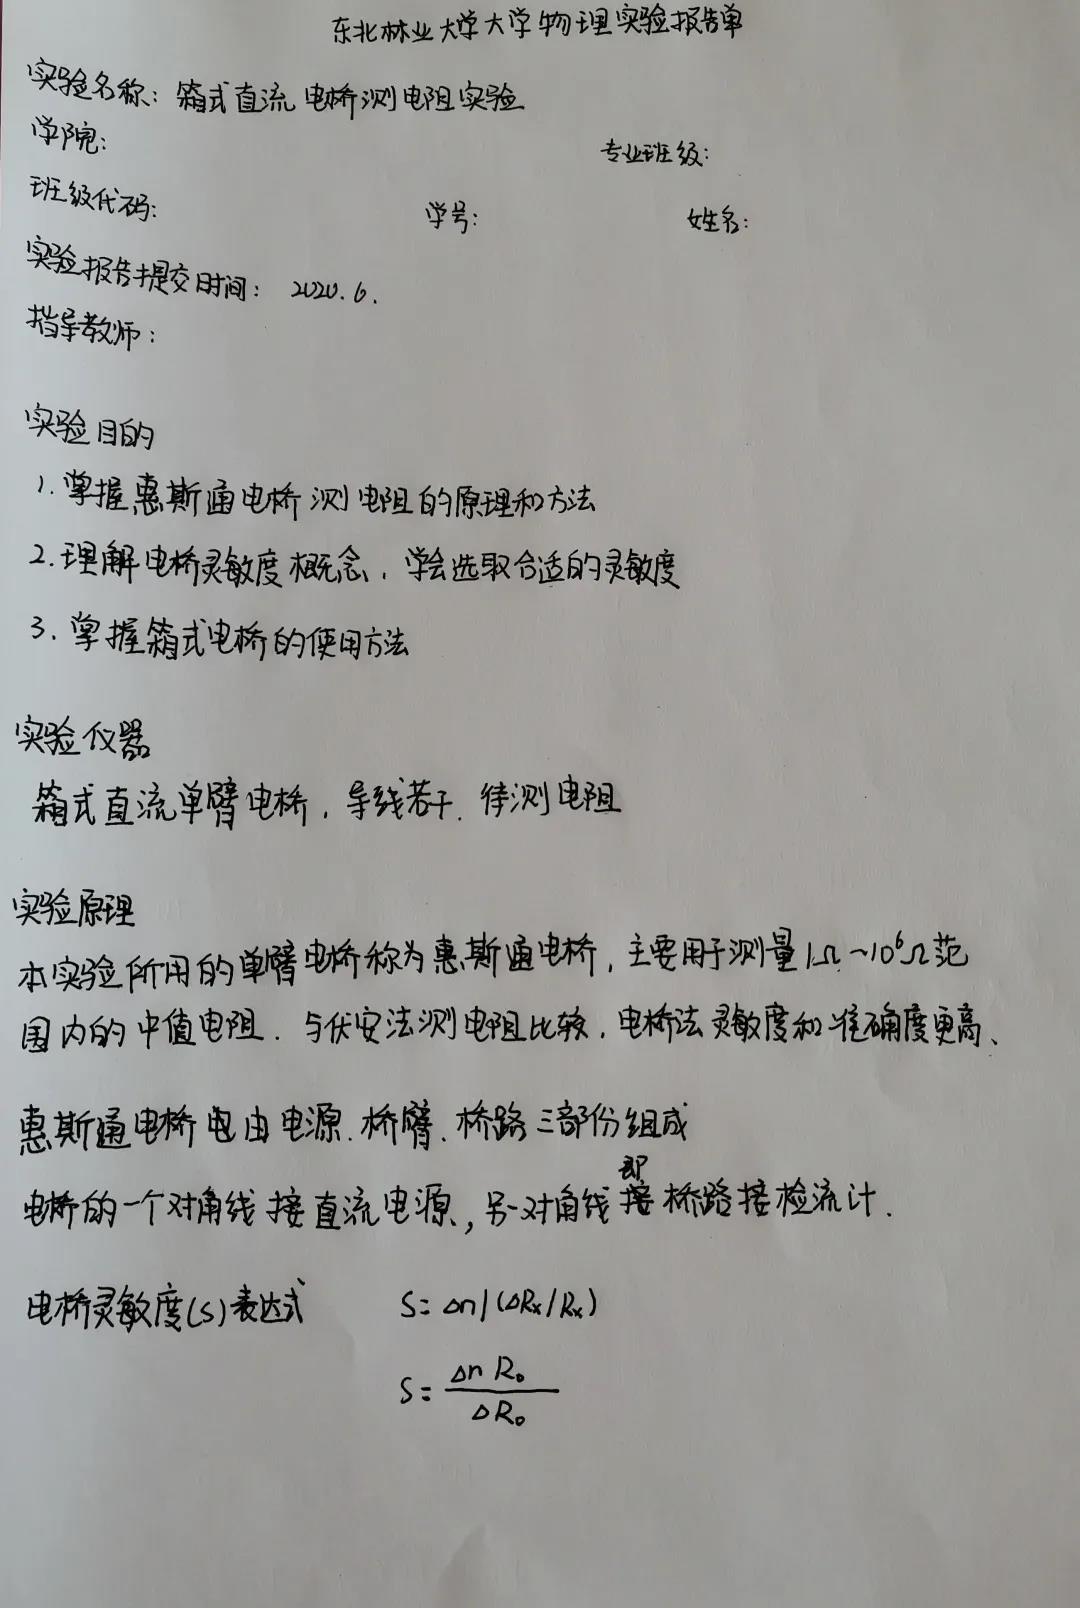 东北林业大学大学物理实验报告单
实验名称：箱式直流电桥测电阻实验
学院：
专业班级：
班级代码：
学号：
姓名：
实验报告提交时间：2020.6.
指导教师：
实验目的
1.掌握惠斯通电桥测电阻的原理和方法
2.理解电桥灵敏度概念，学会选取合适的灵敏度
3.掌握箱式电桥的使用方法
实验仪器
箱式直流单臂电桥，导线若干．待测电阻
实验原理
本实验所用的单臂电桥称为惠斯通电桥，主要用于测量1Ω~10⁶Ω范
围内的中值电阻．与伏安法测电阻比较，电桥法灵敏度和准确度更高、
惠斯通电桥电由电源．桥臂．桥路三部份组成
即
电桥的一个对角线接直流电源，另一对角线接桥路接检流计．
电桥灵敏度(S)表达式 S=Δn/(ΔRx/Rx)
S=Δn R₀/ΔR₀